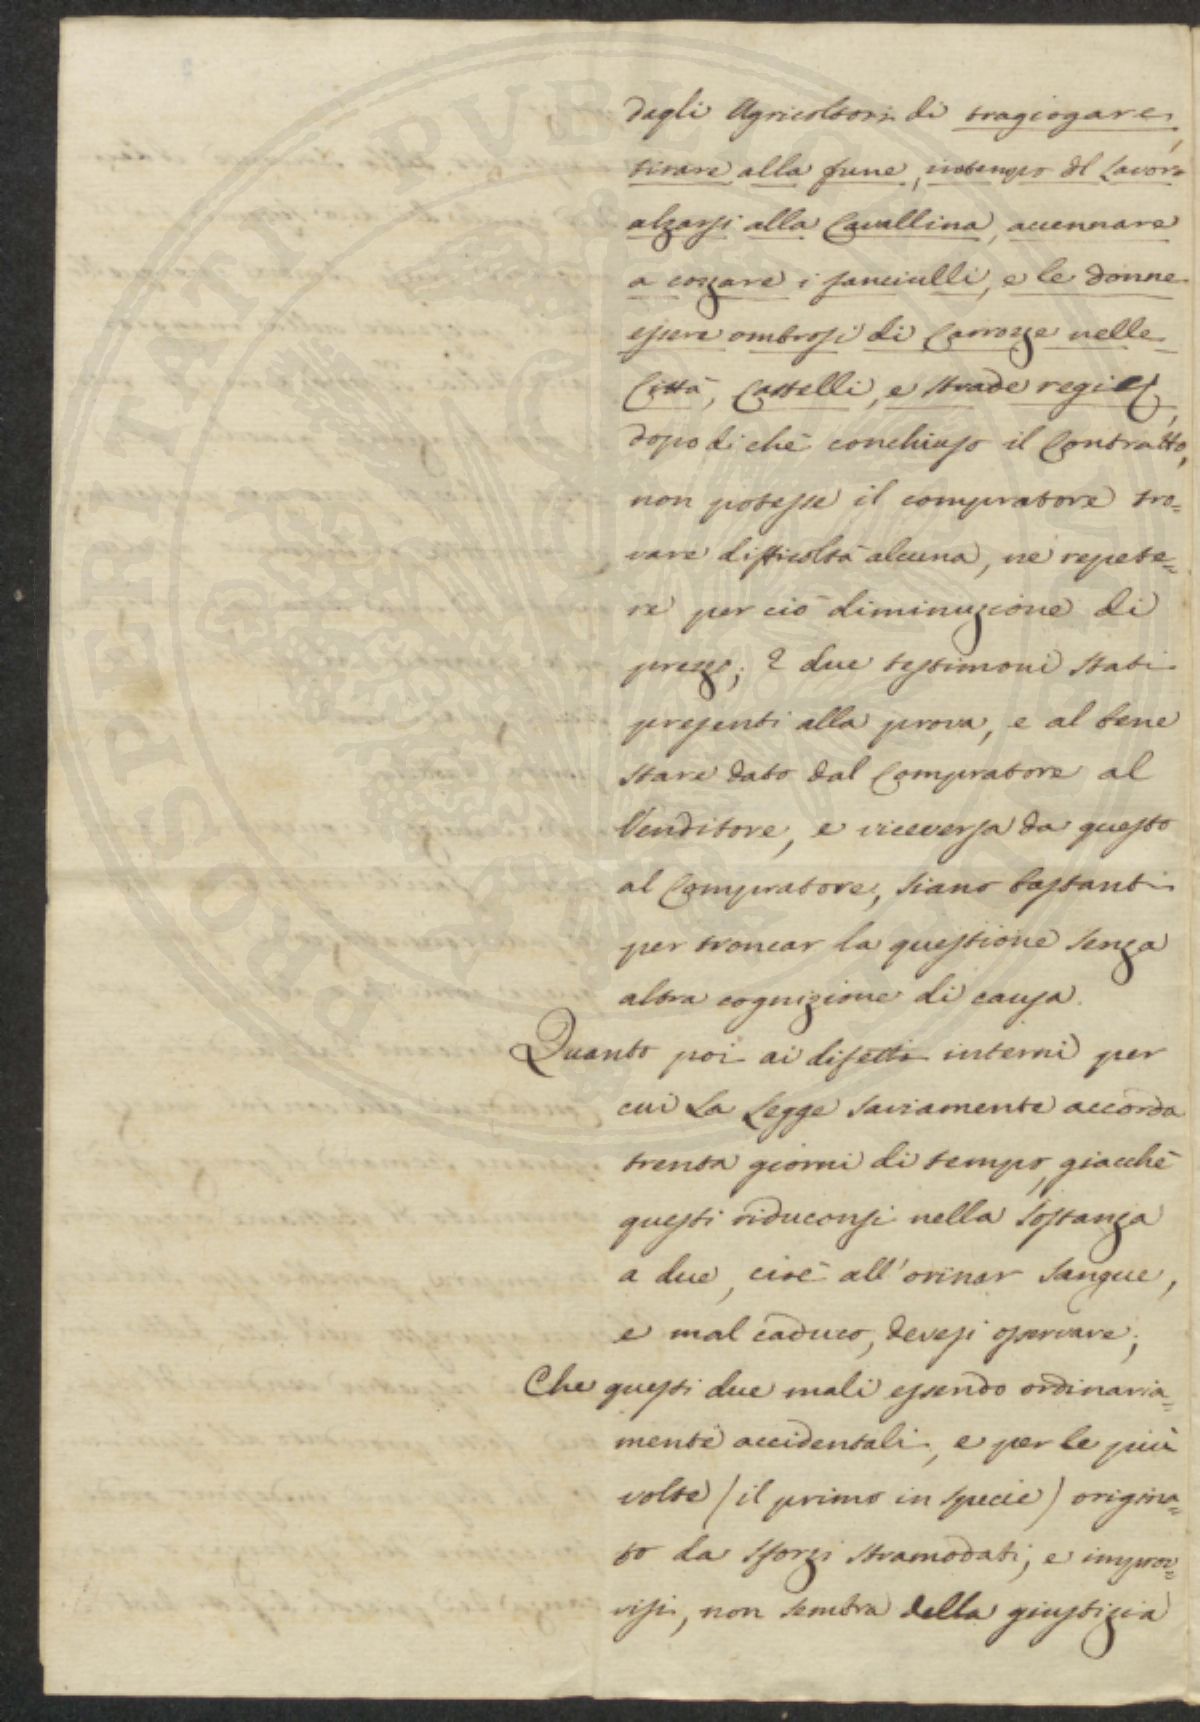 dagli Agricoltori di tragiogare,
tirare alla fune, intempo del Lavoro
alzarsi alla Cavallina, accennare
a cozzare i fanciulli, e le donne
essere ombrosi di Carrozze nelle
Città, Castelli, e strade regie,
dopo di chè conchiuso il Contratto,
non potesse il compratore tro=
vare difficoltà alcuna, ne repete=
re per ciò diminuzione di
prezzo; E due testimoni stati
presenti alla prova, e al bene
stare dato dal Compratore al
Venditore, e viceversa da questo
al Compratore, siano bastanti
per troncar la questione senza
altra cognizione di causa.
Quanto poi ai difetti interni per
cui La Legge saviamente accorda
trenta giorni di tempo, giacchè
questi riduconsi nella Sostanza
a due, cioè all'orinar Sangue,
e mal caduco, devesi osservare;
Che questi due mali essendo ordinaria=
mente accidentali, e per le più
volte (il primo in specie) origina=
to da sforzi stramodati, e improv=
visi, non sembra della giustizia